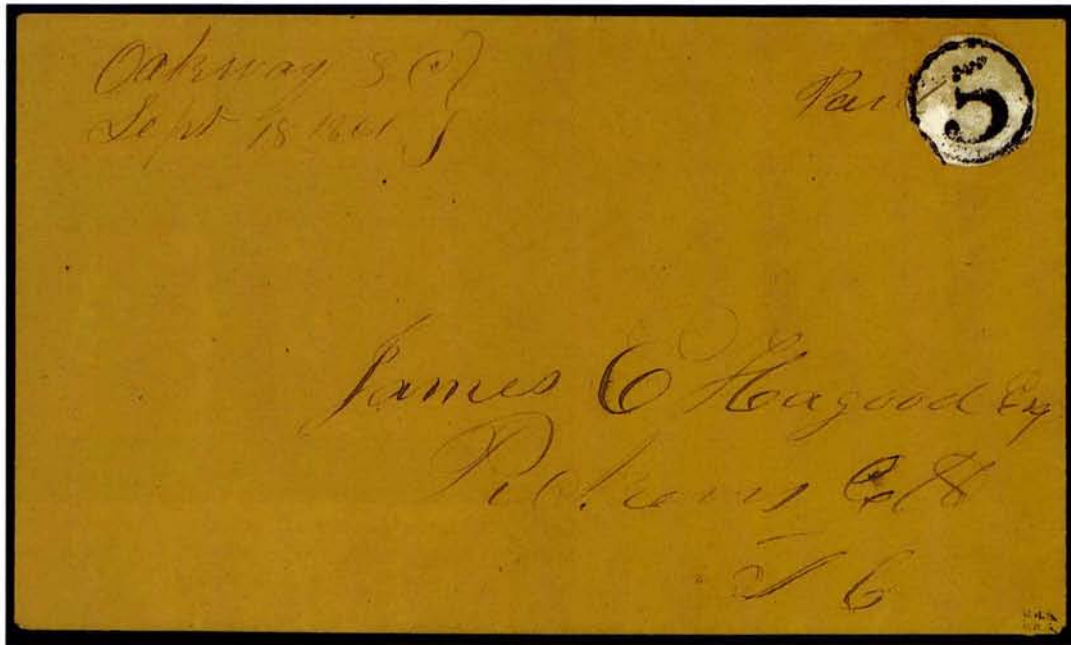 Oakway S C
Sept 18 1861
Paid
5
James C Hagood Esq
Pickens C H
S C